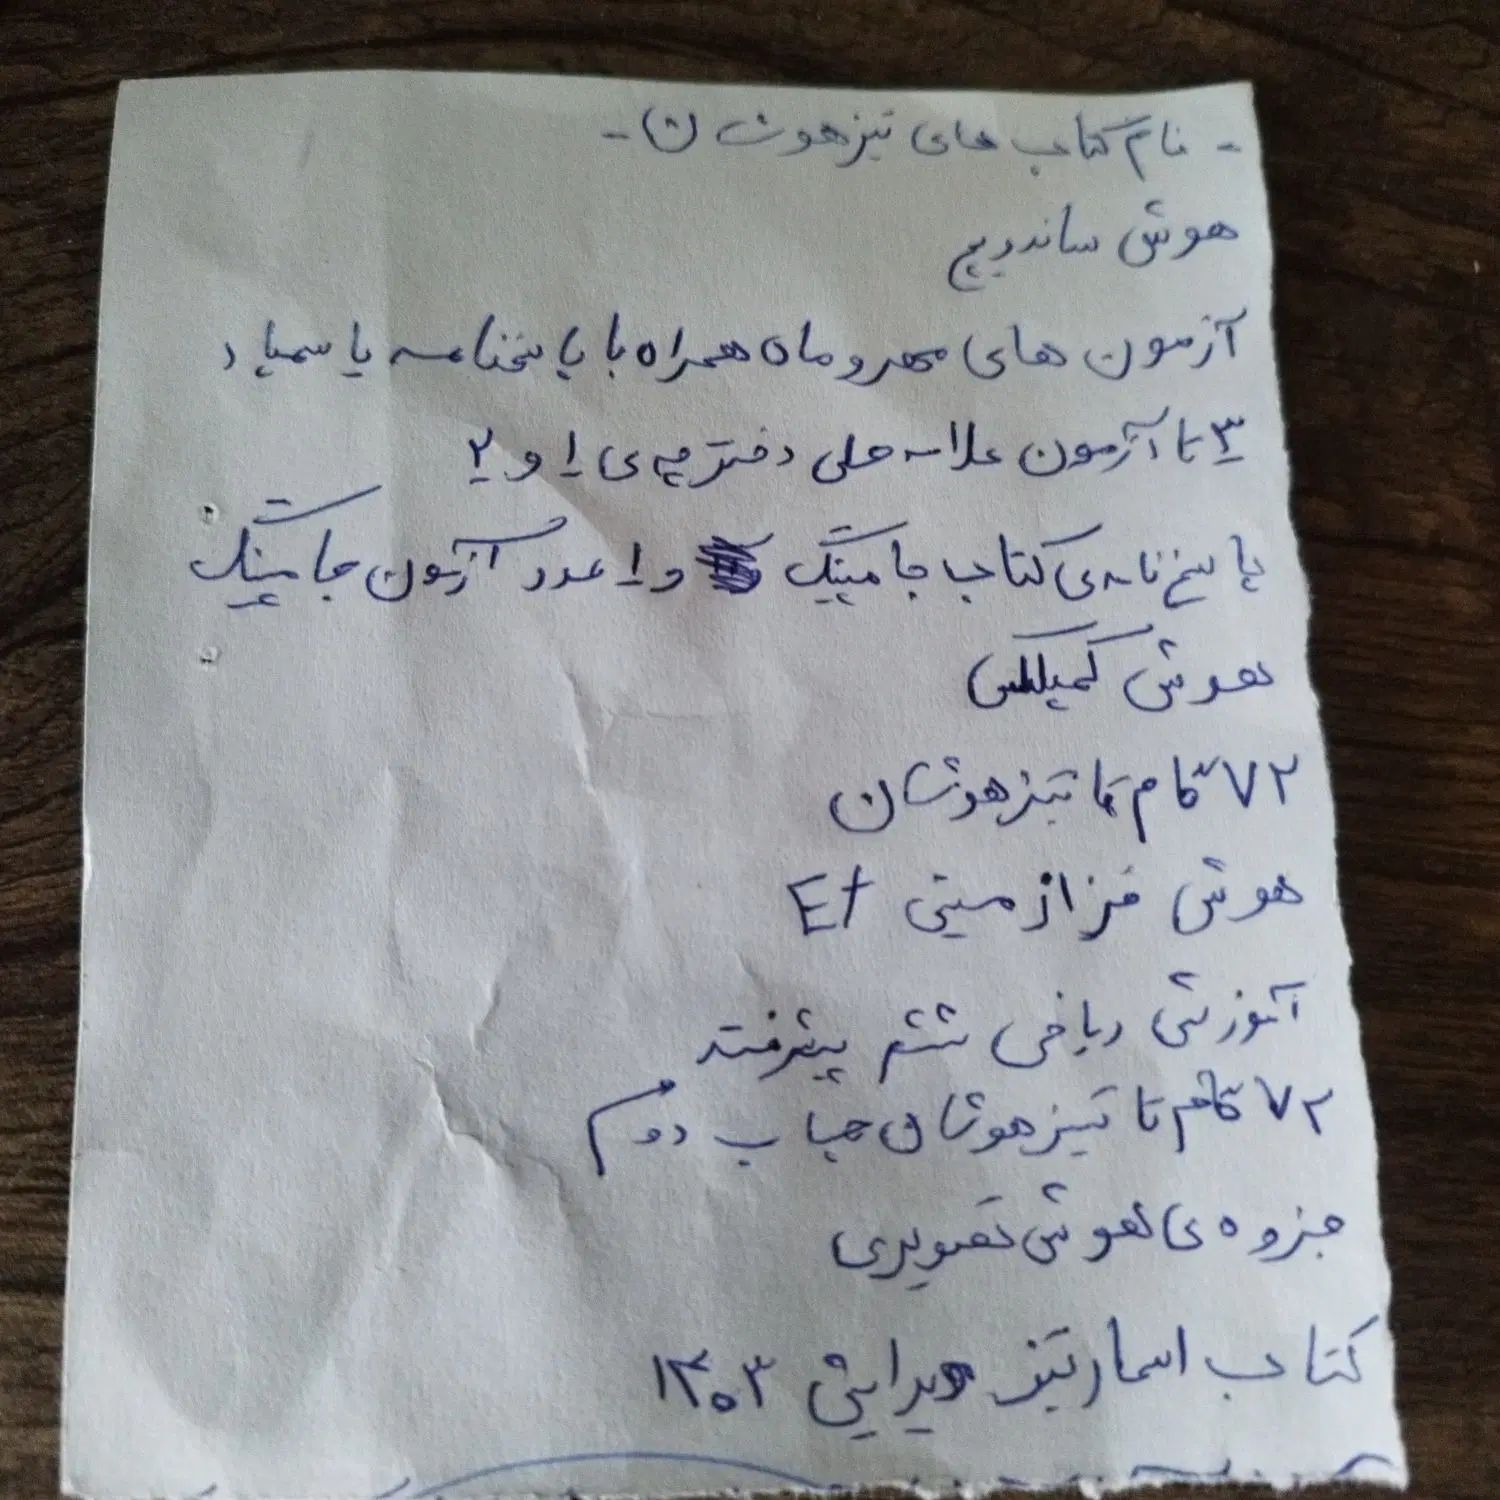 - نام کتاب های تیزهوشان -
هوش ساندویچ
آزمون های مهروماه همراه با پاسخنامه یا سمپاد
۳ تا آزمون علامه حلی دفترچه ی ۱ و ۲
پاسخ نامه ی کتاب جامپینگ و ۱ عدد آزمون جامپینگ
هوش کمپلکس
۷۲ گام تا تیزهوشان
هوش فرازمینی EX
آموزش ریاضی ششم پیشرفته
۷۲ گام تا تیزهوشان چاپ دوم
جزوه ی هوش تصویری
کتاب اسمارتیز ویرایش ۱۴۰۳